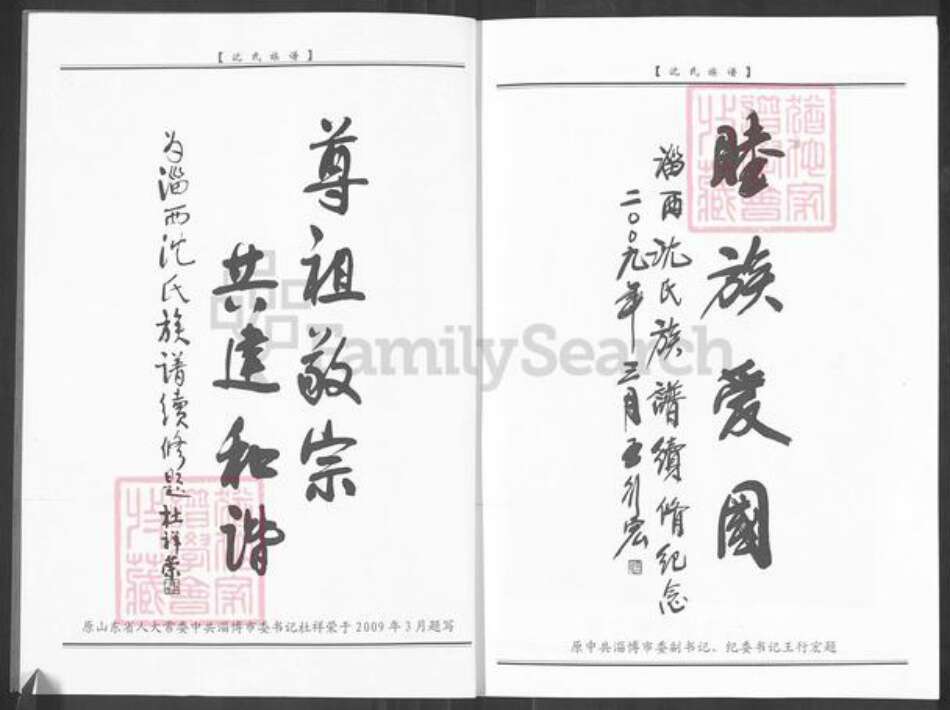 【沈氏族谱】
尊祖敬宗
共建和谐
为淄西沈氏族谱续修题 杜祥荣
原山东省人大常委中共淄博市委书记杜祥荣于2009年3月题写
【沈氏族谱】
睦族爱國
淄西沈氏族譜續脩纪念
二〇〇九年三月王行宏
原中共淄博市委副书记、纪委书记王行宏题
FamilySearch